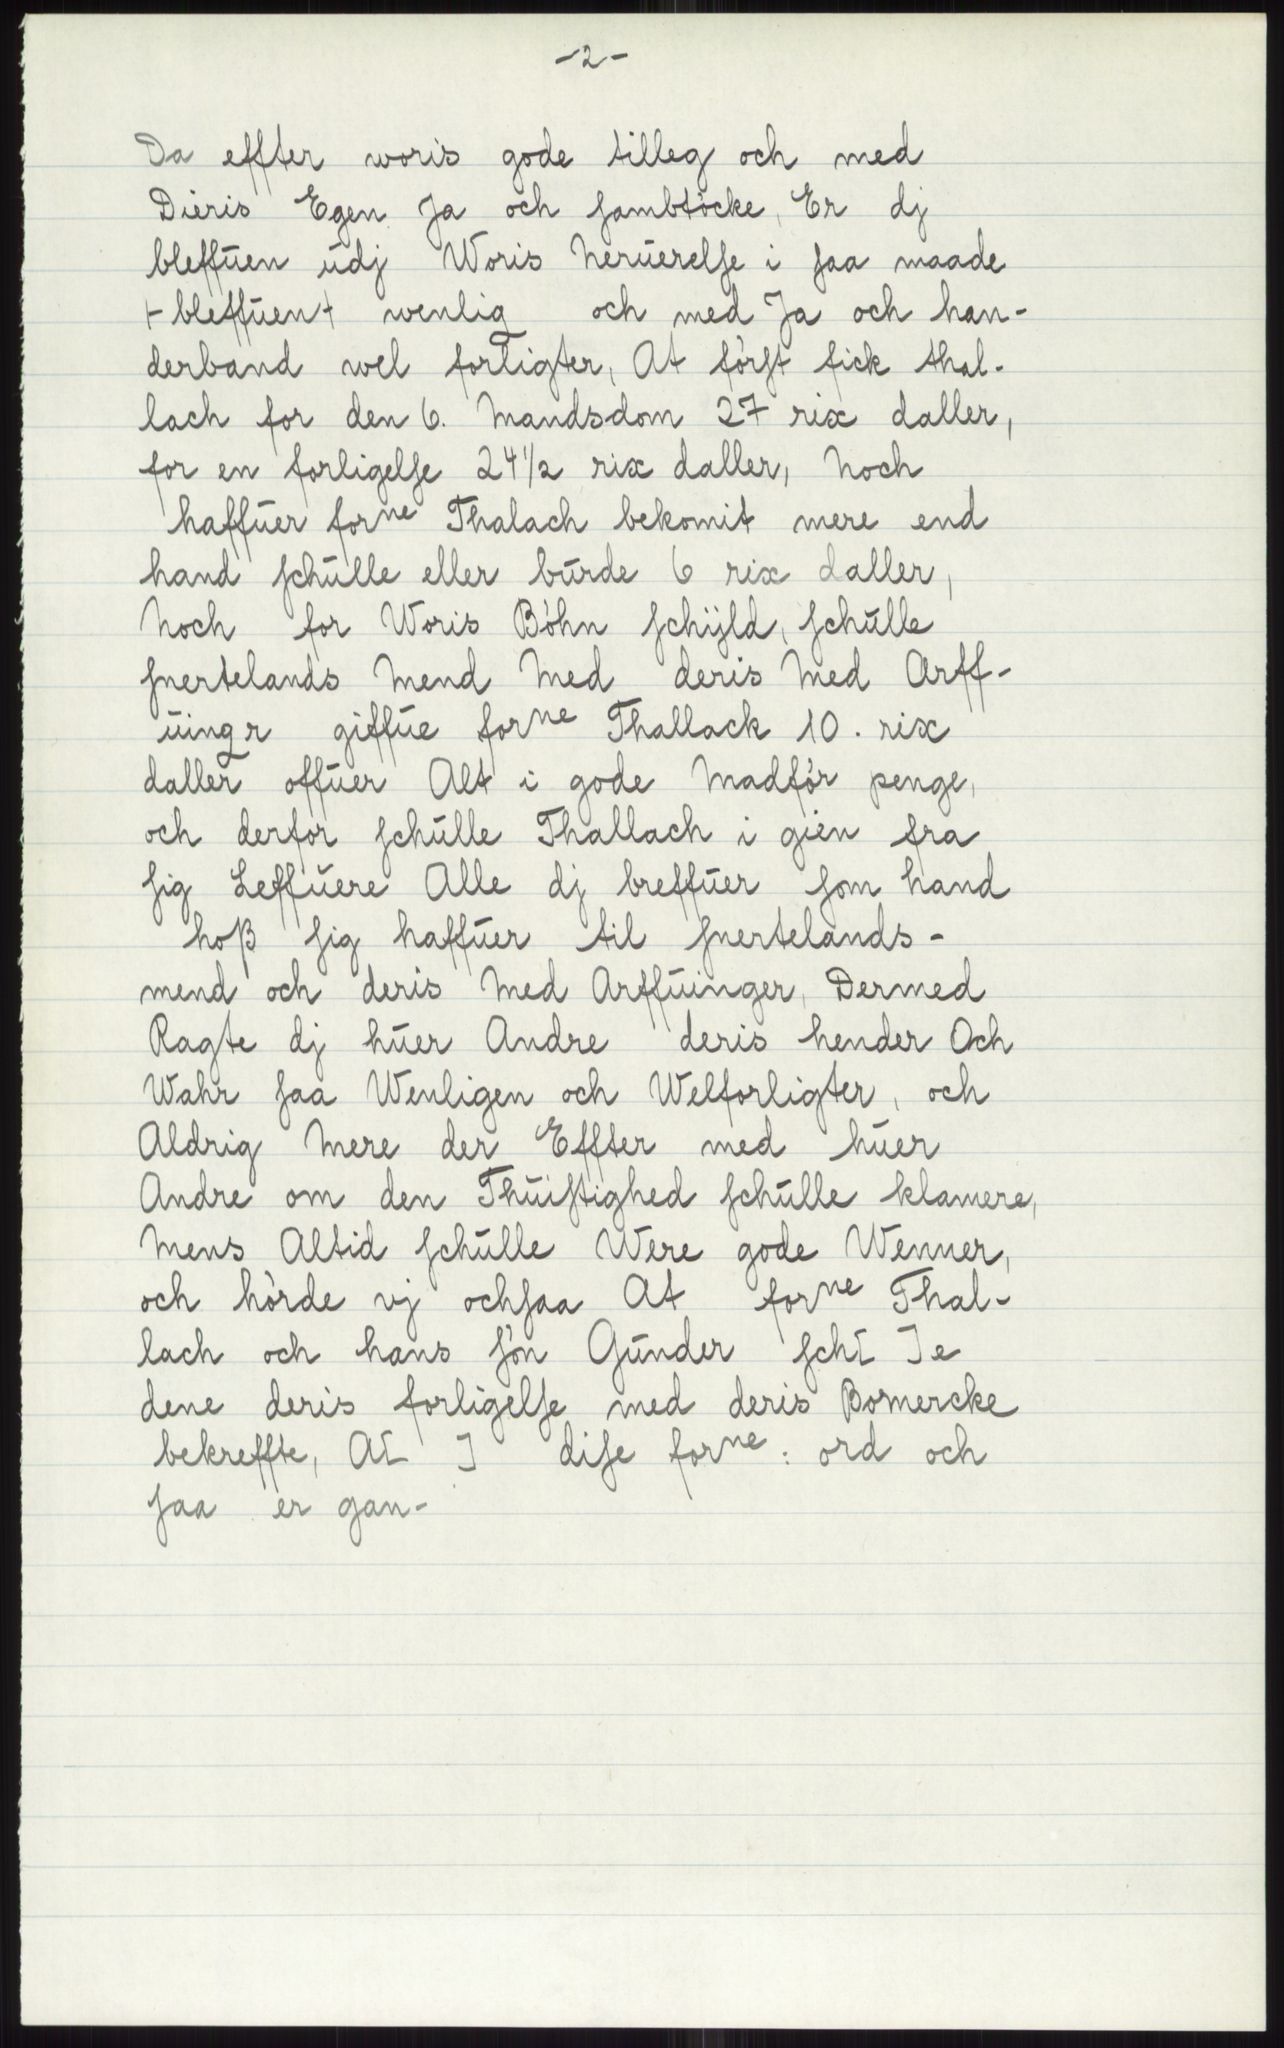 -2-
Da effter woris gode tilleg och med
Dieris Egen Ja och sambtöcke, Er dj
bleffuen udj Woris Neruerelse i saa maade
⊢bleffuen⊣ wenlig och med Ja och han-
derband wel forligter, At först fick thal-
lach for den 6. Mandsdom 27 rix daller,
for en forligelse 24½ rix daller, Noch
haffuer forne Thalach bekomit mere end
hand schulle eller burde 6 rix daller,
Noch for Woris Böhn schijld, schulle
snertelands Mend Med deris Med Arff-
uingr giffue forne Thallack 10. rix
daller offuer Alt i gode Madför penge,
och derfor schulle Thallach i gien fra
sig Leffuere Alle dj breffuer som hand
hoß sig haffuer til snertelands-
mend och deris Med Arffuinger, Dermed
Ragte dj huer Andre deris hender Och
Wahr saa Wenligen och Welforligter, och
Aldrig Mere der Effter med huer
Andre om den Thuistighed schulle klamere,
Mens Altid schulle Were gode Wenner,
och hörde vj ochsaa At forne Thal-
lach och hans sön Gunder sch[ ]e
dene deris forligelse med deris Bomercke
bekreffte, At[ ] dise forne: ord och
saa er gan-